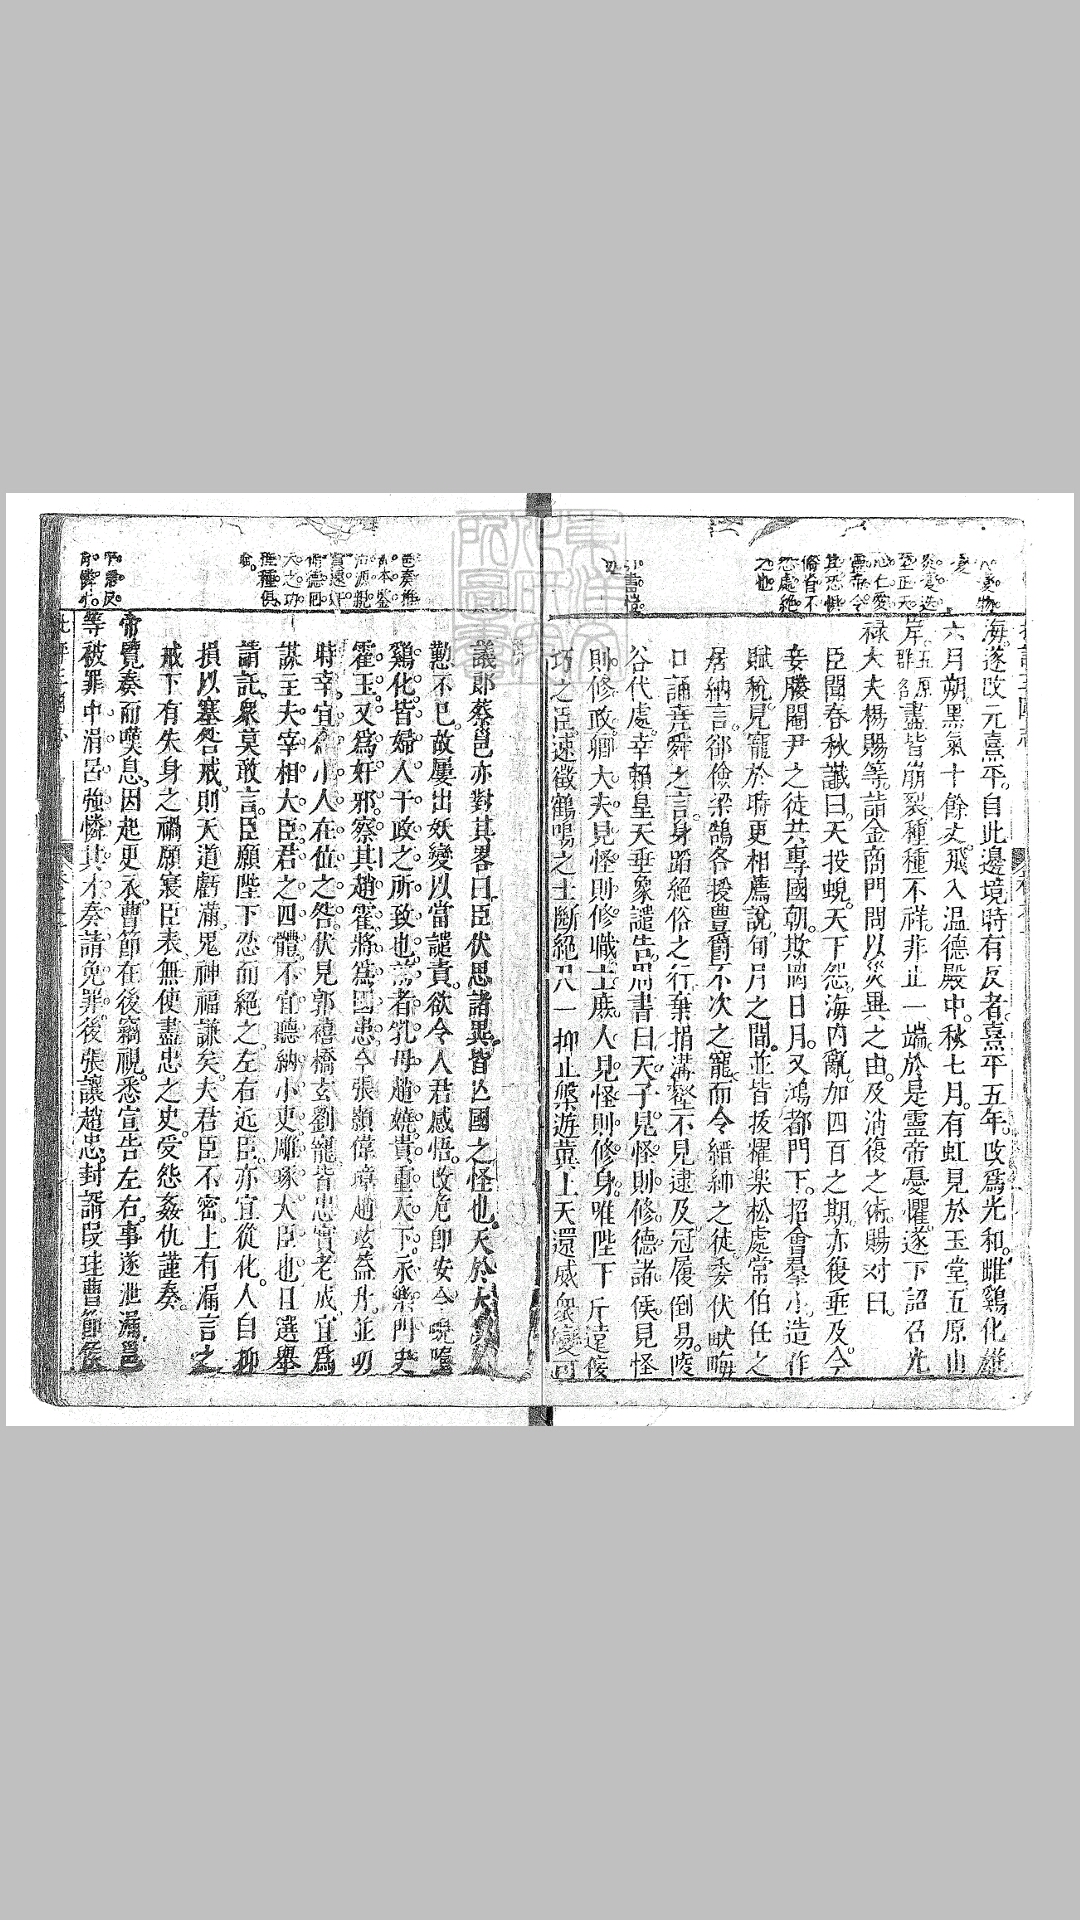 海遂改元熹平自此邊境時有反者熹平五年改爲光和雌鷄化雄
六月朔黑氣十餘丈飛入温德殿中秋七月有虹見於玉堂五原山
岸五原郡名盡皆崩裂種種不祥非止一端於是靈帝憂懼遂下詔召光
祿大夫楊賜等詣金商門問以災異之由及消復之術賜对曰
臣聞春秋讖曰天投蜺天下怨海内亂加四百之期亦復垂及今
妾媵閹尹之徒共專國朝欺罔日月又鴻都門下招會羣小造作
賦稅見寵於時更相薦說旬月之間並皆拔擢樂松處常伯任之
居納言郤儉梁鵠各授豊爵不次之寵而令縉紳之徒委伏畎畮
口誦堯舜之言身蹈絕俗之行棄捐溝壑不見逮及冠履倒易陵
谷代處幸賴皇天垂象譴告周書曰天子見怪則修德諸侯見怪
則修政卿大夫見怪則修職士庶人見怪則修身唯陛下斥遠佞
巧之臣速徵鶴鳴之士斷絕尺一抑止槃遊冀上天還威衆變可
議郎蔡邕亦對其畧曰臣伏思諸異皆亡國之怪也天於大
懃不已故屢出妖變以當譴責欲令人君感悟改危卽安今蜺墮
鷄化皆婦人干政之所致也前者乳母趙嬈貴重天下永樂門史
霍玉又爲奸邪察其趙霍將爲國患今張顥偉璋趙玹葢升並叨
時幸宜念小人在位之咎伏見郭禧橋玄劉寵皆忠實老成宜爲
謀主夫宰相大臣君之四體不宜聽納小吏雕琢大臣也且選舉
請託衆莫敢言臣願陛下忍而絕之左右近臣亦宜從化人自抑
損以塞咎戒則天道虧滿鬼神福謙矣夫君臣不密上有漏言之
戒下有失身之禍願寢臣表無使盡忠之吏受怨姦仇謹奏
帝覽奏而嘆息因起更衣曹節在後竊視悉宣告左右事遂泄漏邕
等破罪中涓呂強憐其才奏請免罪後張讓趙忠封諝段珪曹節侯